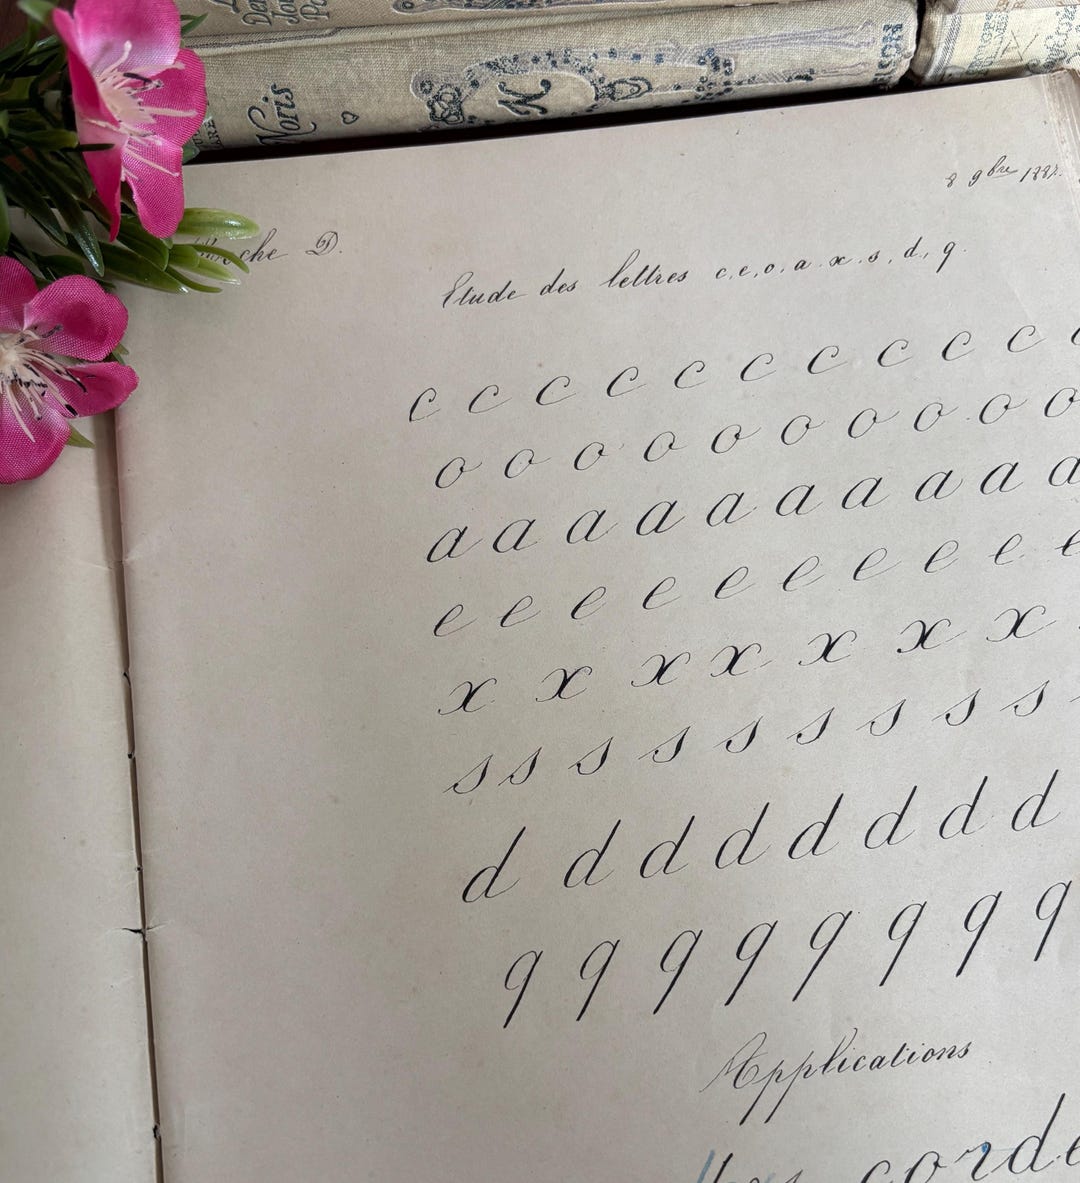 Noris
N
8 9bre 188
D.
Etude des lettres c, e, o, a, x, s, d, q.
c c c c c c c c c c
o o o o o o o o o o
a a a a a a a a a a
e e e e e e e e e e
x x x x x x x
s s s s s s s s s
d d d d d d d d
q q q q q q q q
Applications
corde